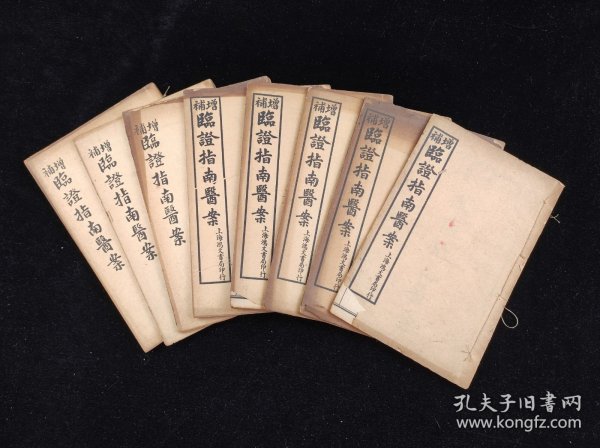 增補
臨證指南醫案
增補
臨證指南醫案
增補
臨證指南醫案
增補
臨證指南醫案
上海鴻文書局印行
增補
臨證指南醫案
上海鴻文書局印行
增補
臨證指南醫案
上海鴻文書局印行
增補
臨證指南醫案
上海鴻文書局印行
增補
臨證指南醫案
上海鴻文書局印行
孔夫子旧书网
www.kongfz.com